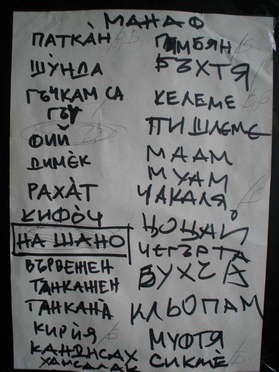 МАНАФ
ПАТКА̀Н
ШУ̀НДА
ГЪЧКАМ СА
ГЪ̀Г
ФИЙ
ДИМЀК
РАХА̀Т
КИФЀЧ
НА ШАНО
ВЪРВЕШЕН
ТАНКАШЕН
ТАНКАНА̀
КИРЍЯ
ПЕМБЯН
БЪХТЯ
КЕЛЕМЕ
ПИШЛЕМЕ
МААМ
МУАМ
ЧАКАЛЯ
ЦОЦАЙ
ЧЕГЪРТА
БУХЧА
КЛЬОПАМ
МУФТЯ
СИКМЀ